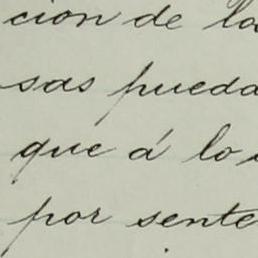 cion de la
sas pueda
que á lo
por sente